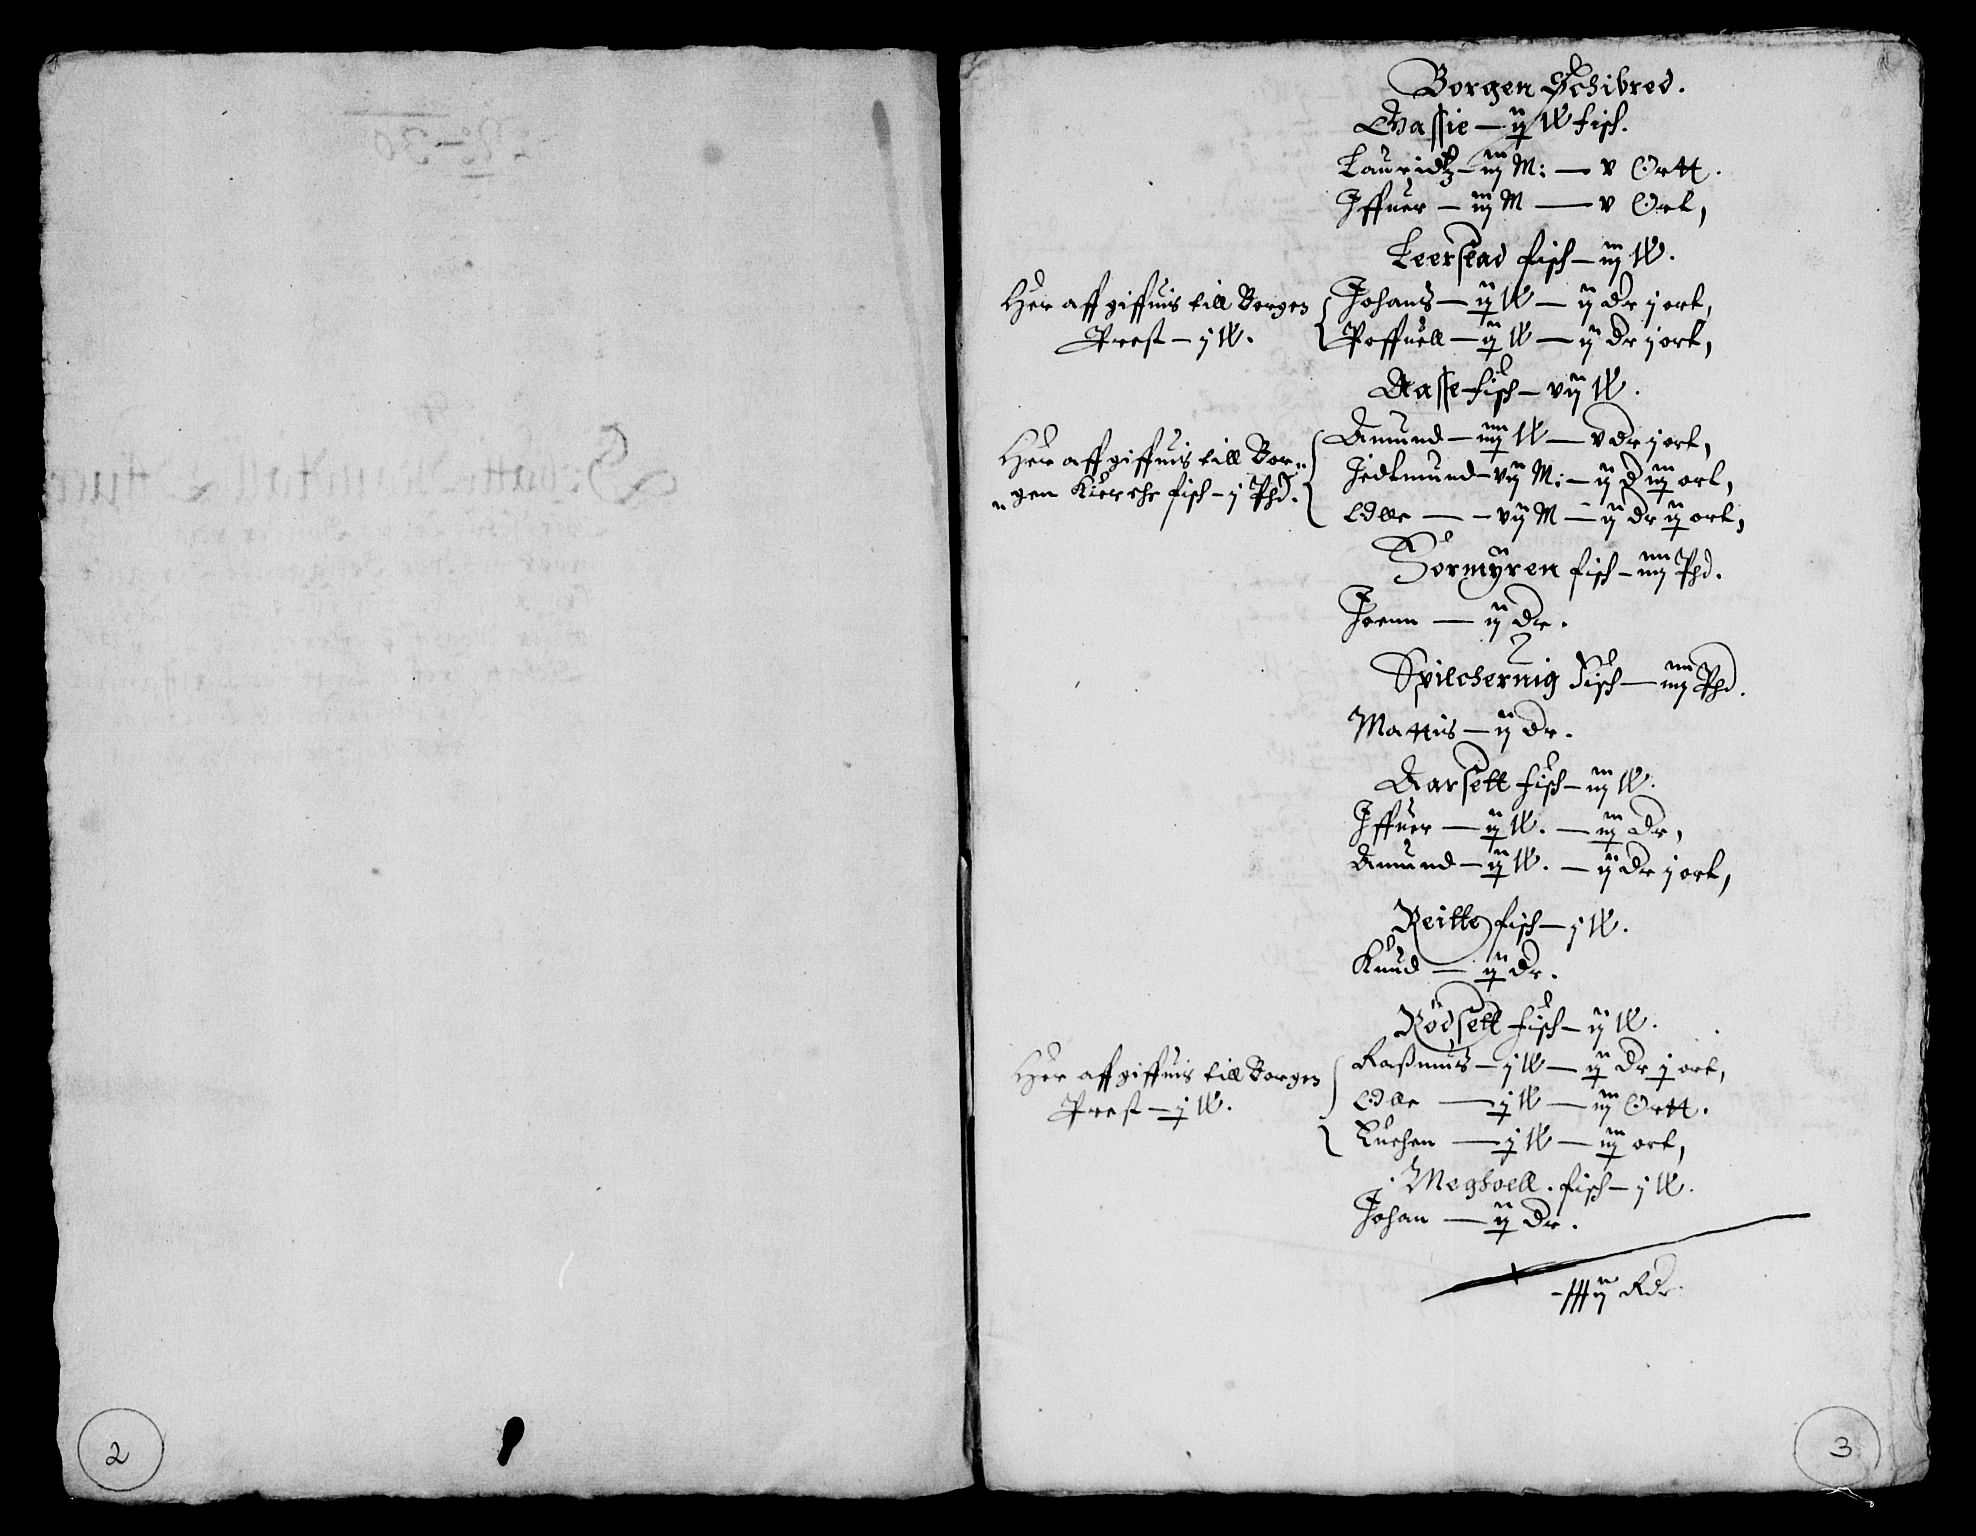 Borgen Schibred.
Gassie — ij W fisch.
Lauridtz — iij M: — v Ortt.
Iffuer — iij M — v Ort,
Leerstad fisch — iij W.
Her aff giffuis till Borgen
Prest — j W.
Johans — ij W — ij dr j ort,
Poffuell — ij W — ij dr j ort,
Aasse fisch — vij W.
Her aff giffuis till Bor„
„gen Kierche fisch — j Phd.
Amund — iiij W — v dr j ort,
Jedtmund — vij M: — ij d iij ort,
Edlle — vij M — ij dr ij ort,
Sormÿren fisch — iiij Phd.
Joenn — ij dr.
Spilchernig Fisch — iiij Phd.
Mattis — ij dr.
Aarsett fisch — iij W.
Iffuer — ij W. — iij dr,
Amund — ij W. — ij dr j ort,
Reitte fisch — j W.
Knud — ij dr.
Rödsett fisch — ij W.
Her aff giffuis till Borgen
Prest — j W.
Rasmus — j W — ij dr j ort,
Edlle — j W — iij Ortt.
Kuchen — j W — iij ort,
Megholl. fisch — j W.
Johan — ij dr.
Rdr.
2
3